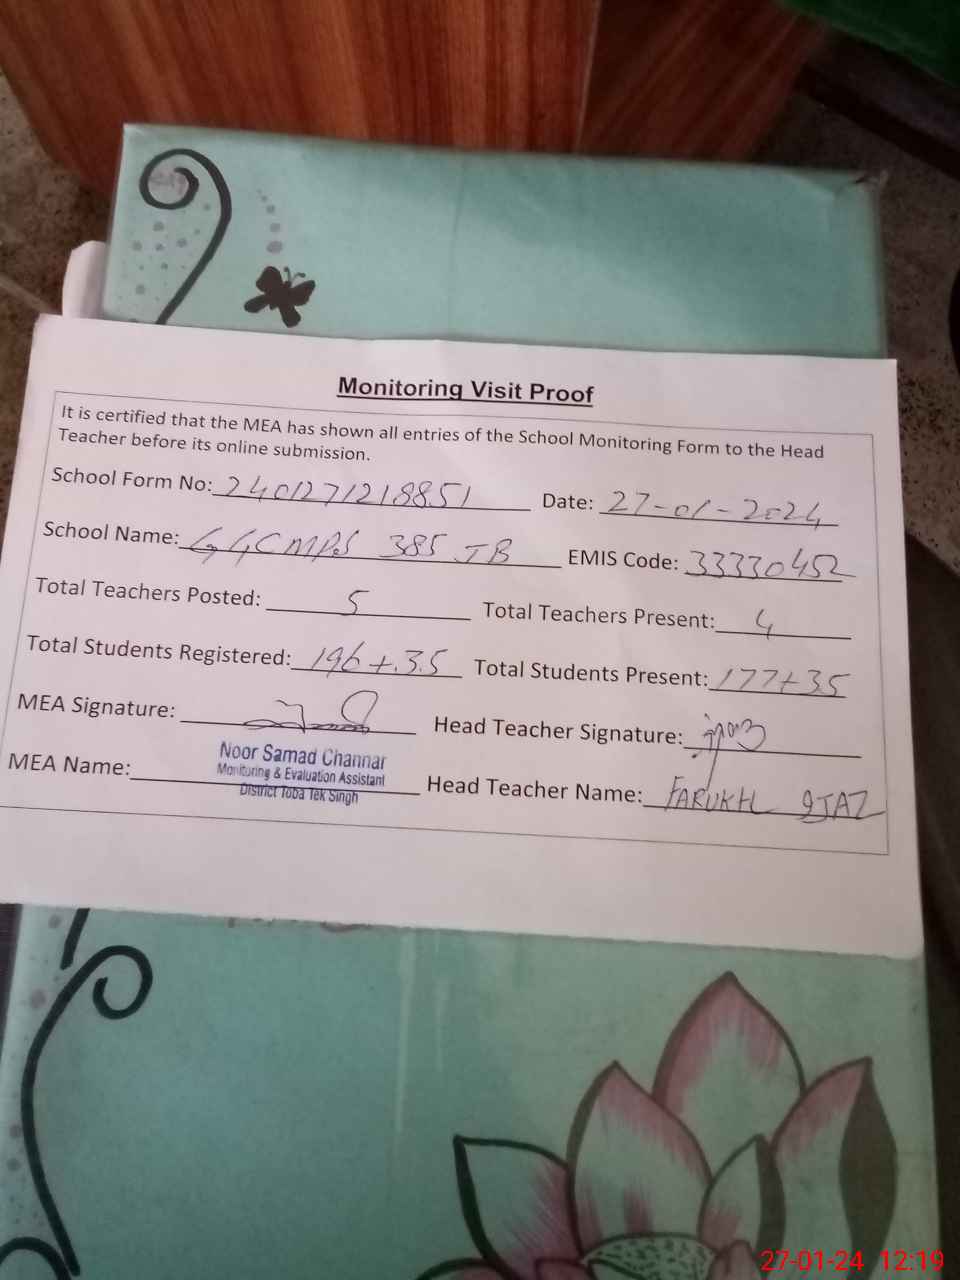 Monitoring Visit Proof
It is certified that the MEA has shown all entries of the School Monitoring Form to the Head
Teacher before its online submission.
School Form No: 2401271218851 Date: 27-01-2024
School Name: GGCMPS 385 JB EMIS Code: 33330452
Total Teachers Posted: 5 Total Teachers Present: 4
Total Students Registered: 196+35 Total Students Present: 177+35
MEA Signature: Head Teacher Signature:
Noor Samad Channar
Monitoring & Evaluation Assistant
District Toba Tek Singh
MEA Name: Head Teacher Name: FARUKH IJAZ
27-01-24 12:19